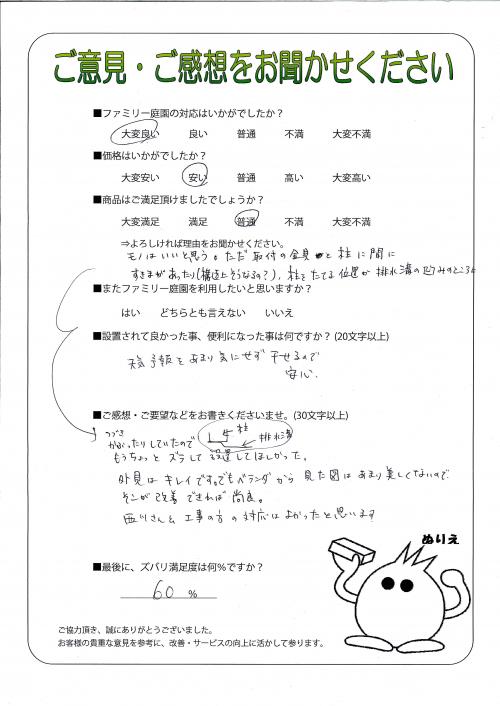 ご意見・ご感想をお聞かせください
■ファミリー庭園の対応はいかがでしたか？
大変良い 良い 普通 不満 大変不満
■価格はいかがでしたか？
大変安い 安い 普通 高い 大変高い
■商品はご満足頂けましたでしょうか？
大変満足 満足 普通 不満 大変不満
⇒よろしければ理由をお聞かせください。
モノはいいと思う。ただ取付の金具と柱に間に
すきまがあったり(構造上そうなるの？)、柱をたてる位置が排水溝の凹みのところに
■またファミリー庭園を利用したいと思いますか？
はい どちらとも言えない いいえ
■設置されて良かった事、便利になった事は何ですか？(20文字以上)
天気予報をあまり気にせず干せるので
安心。
■ご感想・ご要望などをお書きくださいませ。(30文字以上)
つづき
かぶったりしていたので
柱
排水溝
もうちょっとズラして設置してほしかった。
外見はキレイです。でもベランダから見た図はあまり美しくないので
そこが改善できれば尚良。
西川さんも工事の方の対応はよかったと思います
ぬりえ
■最後に、ズバリ満足度は何％ですか？
60 ％
ご協力頂き、誠にありがとうございました。
お客様の貴重な意見を参考に、改善・サービスの向上に活かして参ります。